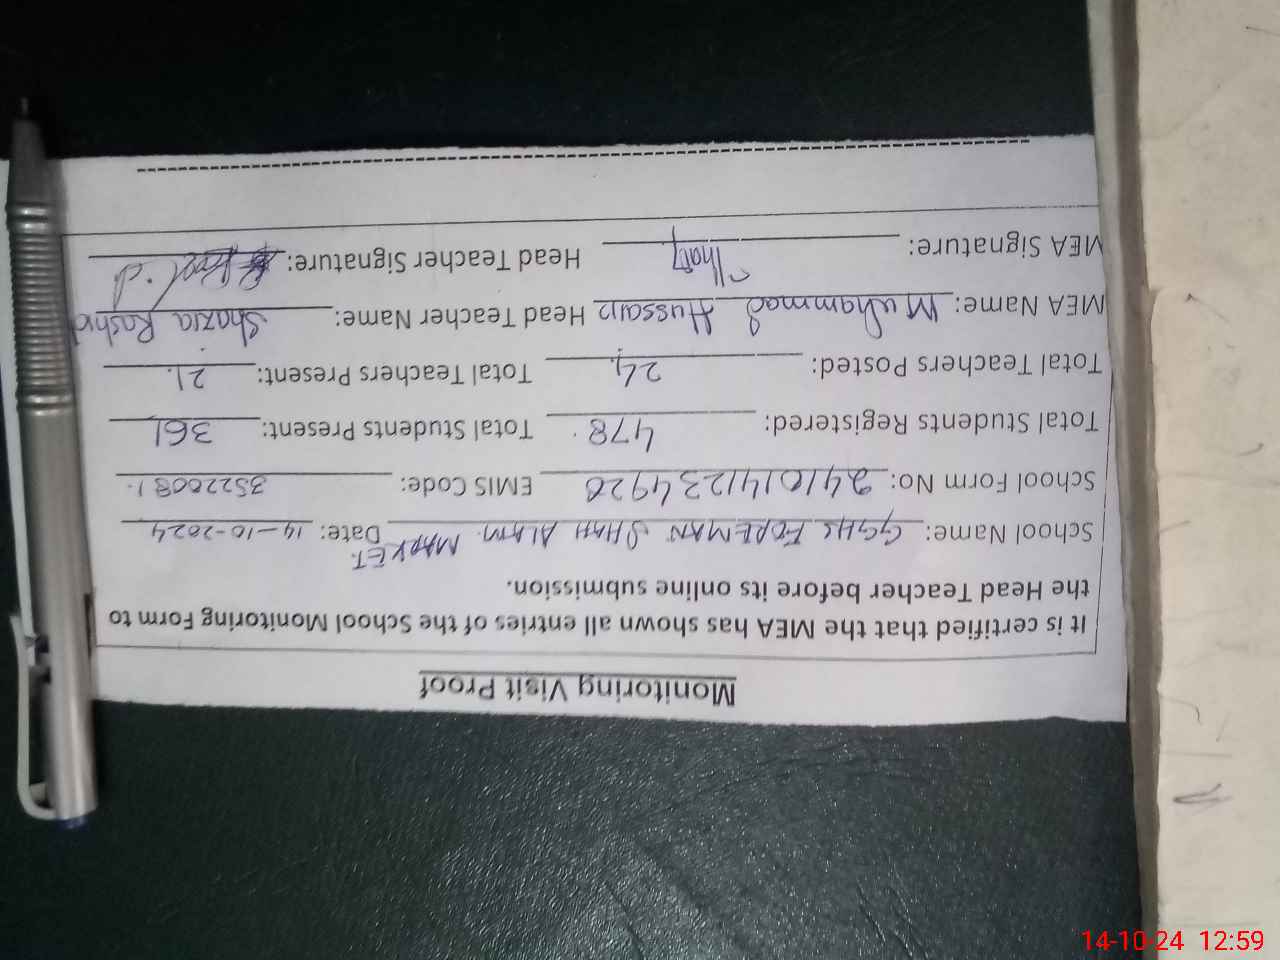 Monitoring Visit Proof
It is certified that the MEA has shown all entries of the School Monitoring Form to
the Head Teacher before its online submission.
School Name: GGHS FOREMAN SHAH ALAM MARKET. Date: 14-10-2024
School Form No: 24101411234920 EMIS Code: 35220081
Total Students Registered: 478 Total Students Present: 361
Total Teachers Posted: 24 Total Teachers Present: 21
MEA Name: Muhammad Hussain Head Teacher Name: Shazia Rashid
MEA Signature: Head Teacher Signature:
14-10-24 12:59